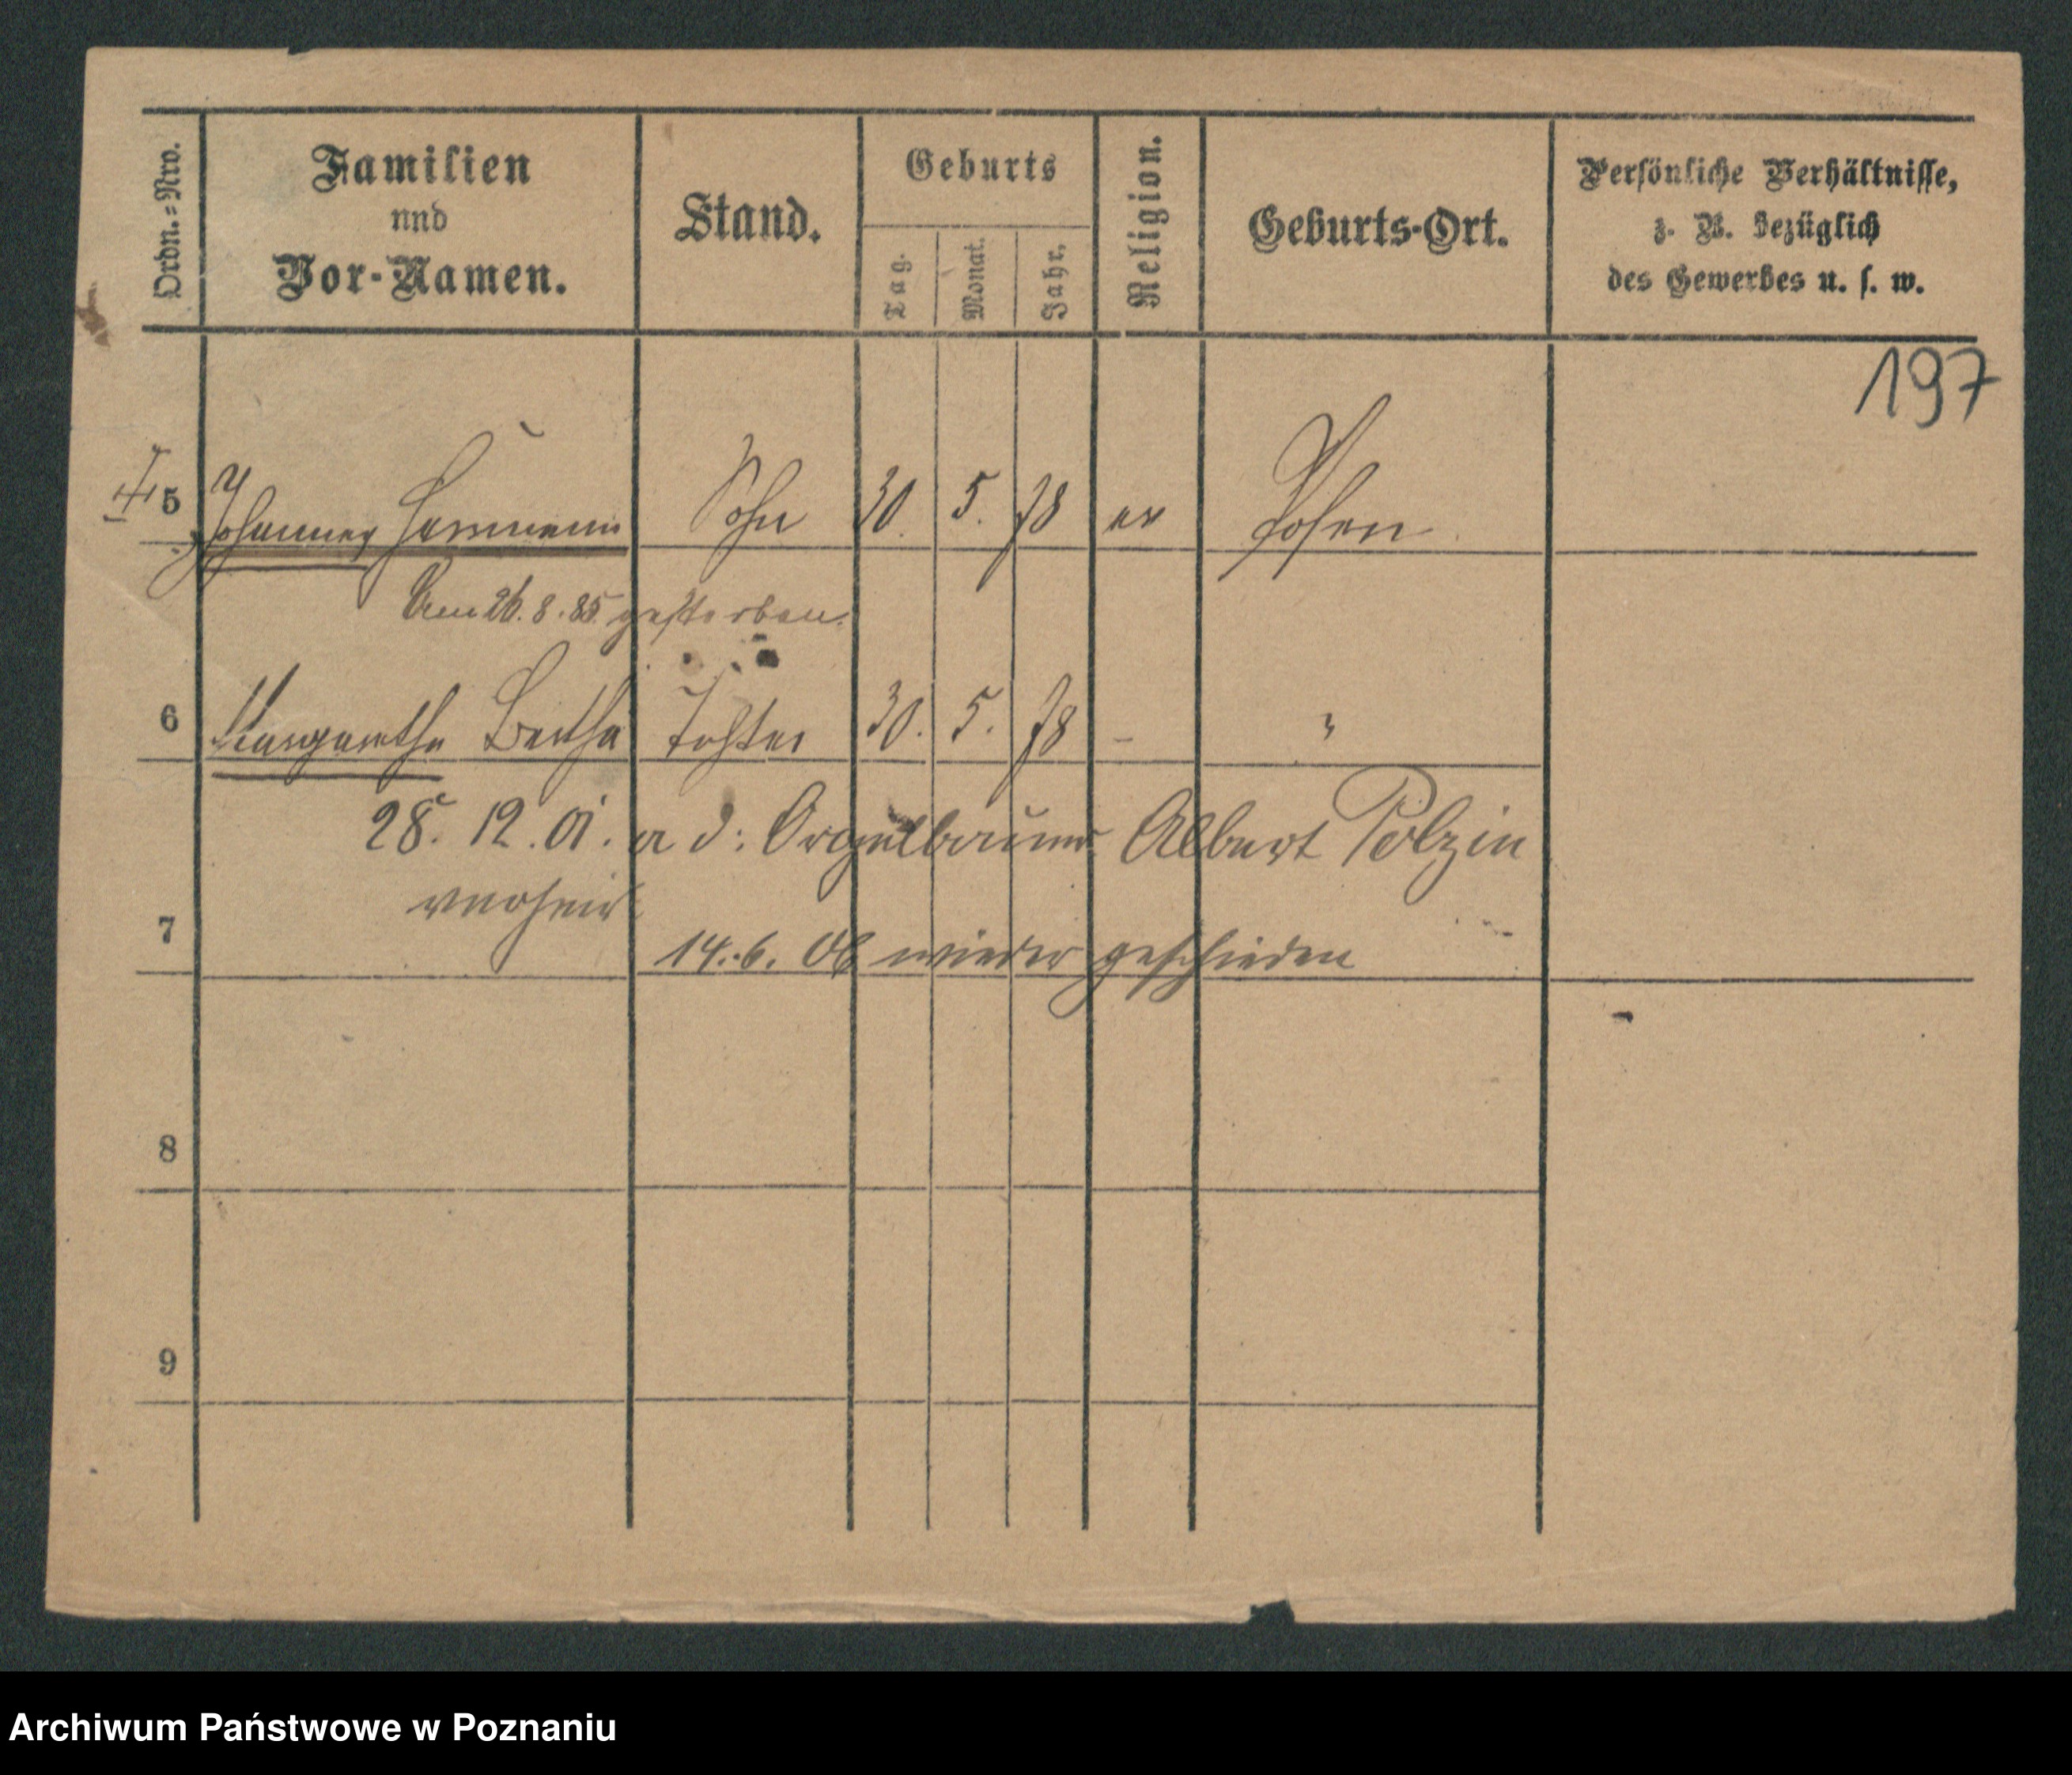 Ordn.=Nro.
Familien
und
Vor-Namen.
Stand.
Geburts
Tag.
Monat.
Jahr.
Religion.
Geburts-Ort.
Persönliche Verhältnisse,
z. B. bezüglich
des Gewerbes u. s. w.
197
5 Johannes Hermann Sohn 30. 5. 78 ev Posen
Am 26. 8. 85 gestorben.
6 Margarethe Bertha Tochter 30. 5. 78 - "
28. 12. 01. a d: Orgelbauer Albert Polzin
verheir
7
14. 6. 06 wieder geschieden
8
9
Archiwum Państwowe w Poznaniu